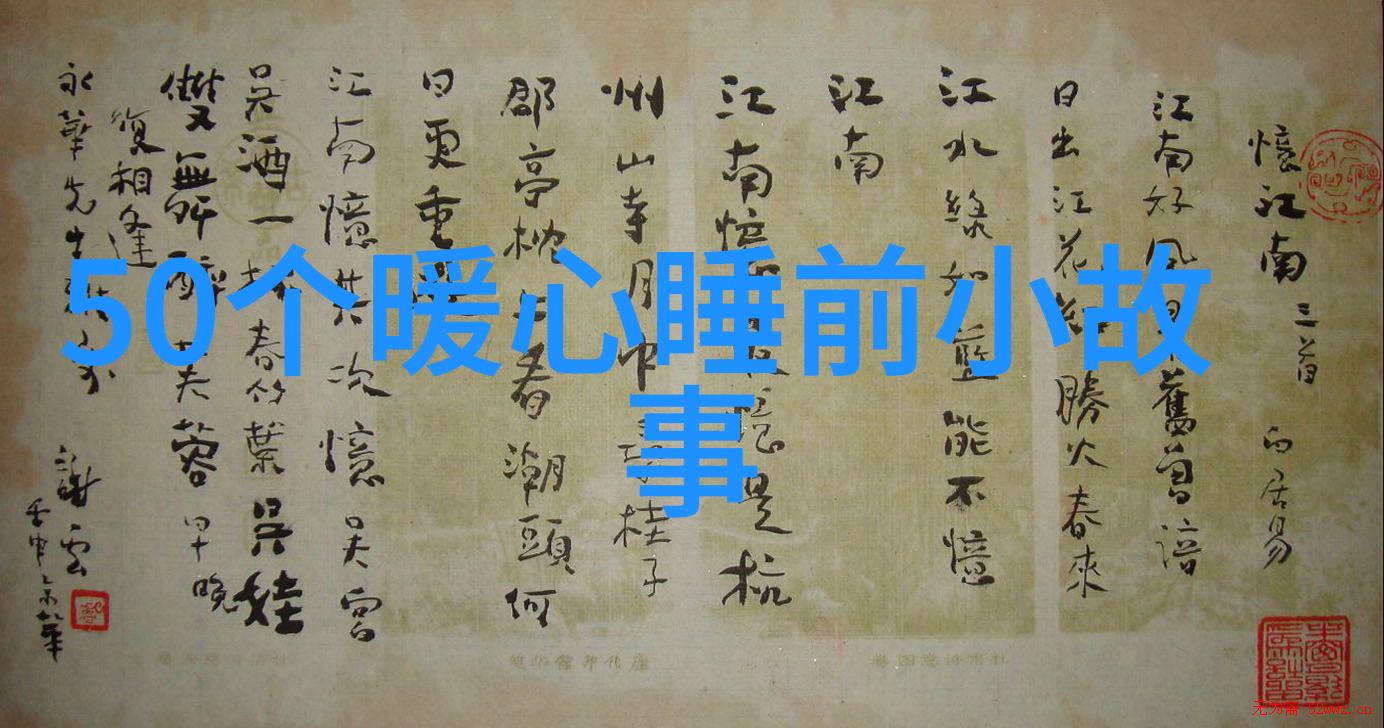 50个暖心睡前小故
事
憶江南 三首 白居易
江南好風舊曾諳
日出江花紅勝火春來
江水綠如藍能不憶
江南
江南憶憶是杭
州山寺月中桂子
郡亭枕上看潮頭何
日更重
江南憶其次憶吳宮
吳酒一杯春竹葉吳娃
雙舞醉芙蓉早晚
復相逢
永華先生
謝雲
无为斋 52wwz.cn